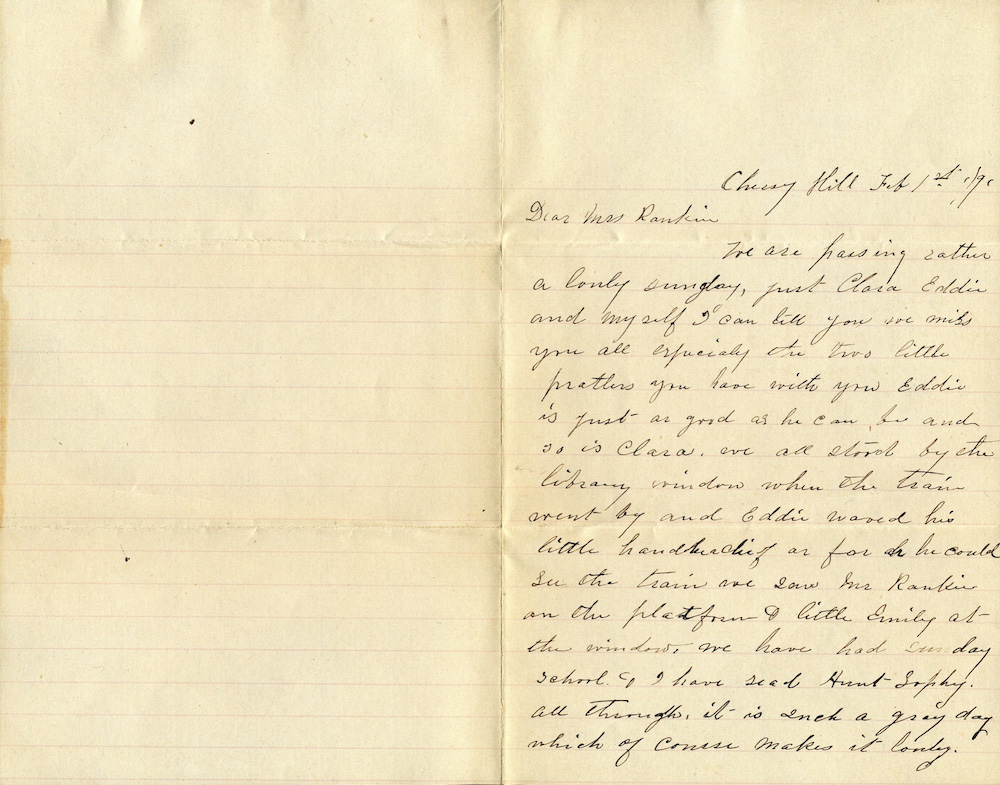 Cherry Hill Feb 1st /91
Dear Mrs Rankin
We are passing rather
a lonly sunday, just Clara Eddie
and my self I can tell you we miss
you all espicialy the two little
pratlers you have with you Eddie
is just as good as he can be and
so is Clara. we all stood by the
library window when the train
went by and Eddie waved his
little handkerchief as far as he could
see the train we saw Mr Rankin
on the platform & little Emily at
the window, we have had sunday
school. & I have read Aunt Sophy.
all through, it is such a gray day
which of course makes it lonly.